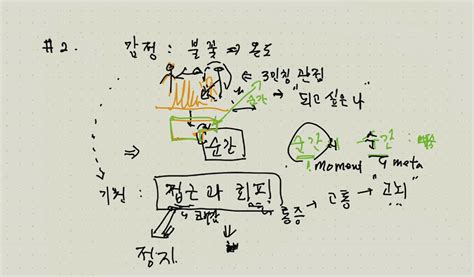 #2. 감정 : 불꽃 ⇒ 온도
⇐ 3인칭 관점
순간 → "되고 싶은 나"
⇒ 순간
순간 순간 :
moment 4 meta
기원 : 접근과 회피
쾌감 통증 → 고통 → "고뇌"
정지